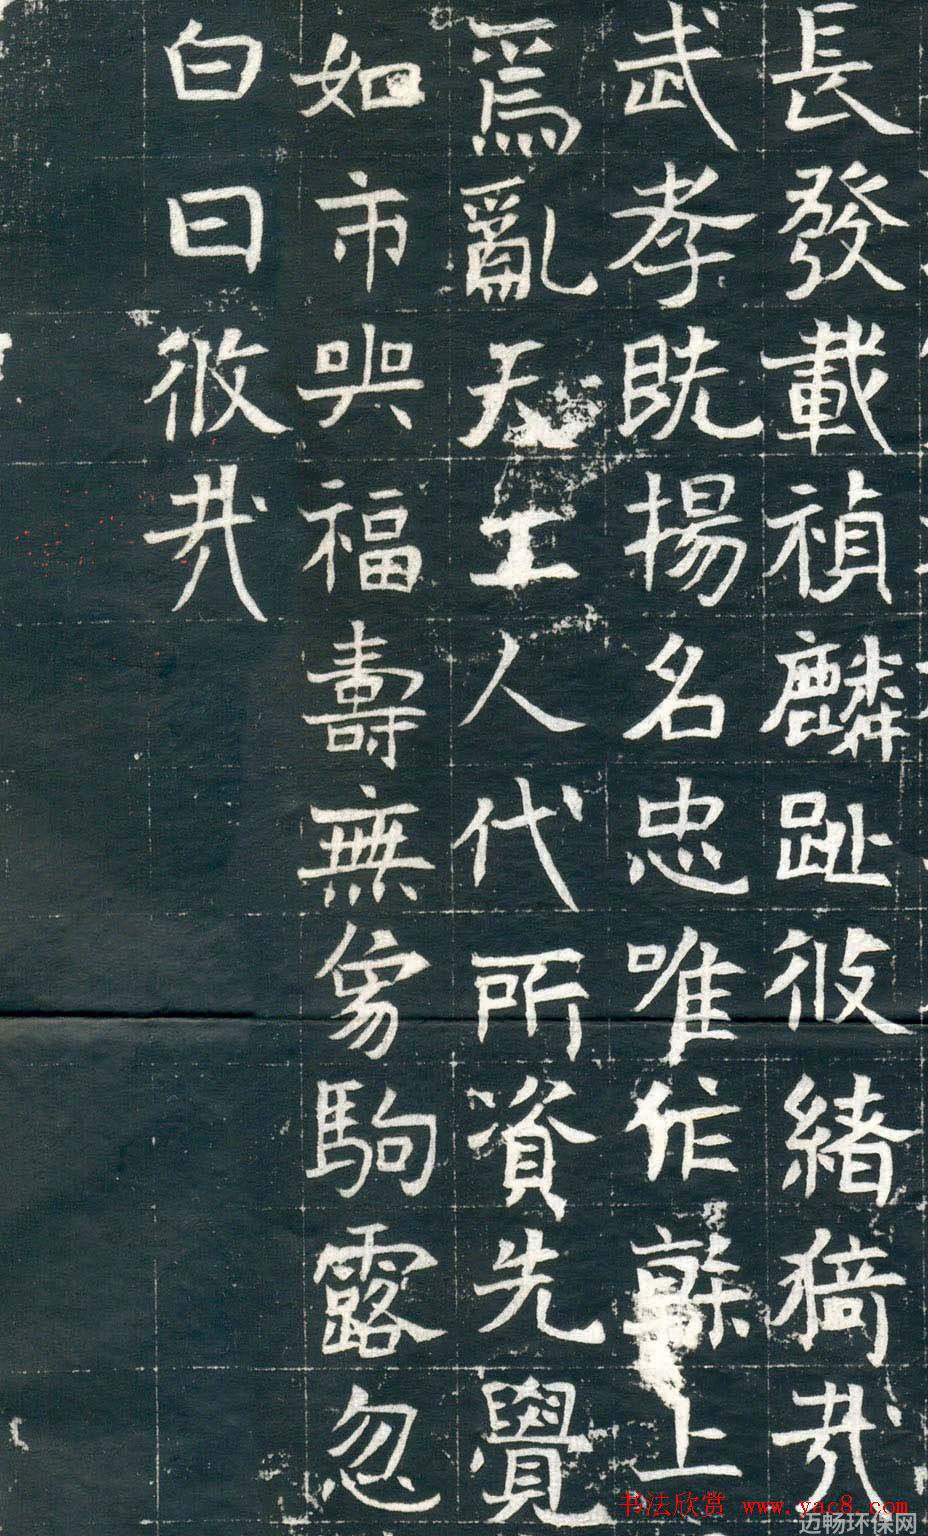 長發載禎麟趾攸緒猗哉
武孝既揚名忠唯作幹上
爲亂天工人代所資先覺
如市與福壽無爲駒露忽
白日攸哉
书法欣赏 www.yac8.com
迈畅环保网